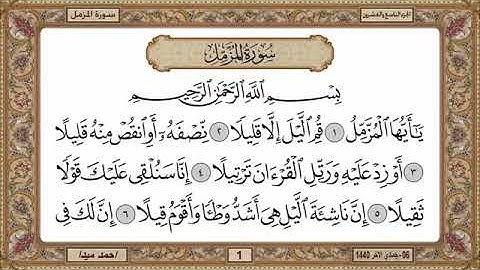 سورة المزمل
الجزء التاسع والعشرون
سُورَةُ المُزَّمِّل
بِسْمِ اللَّهِ الرَّحْمَٰنِ الرَّحِيمِ
يَٰٓأَيُّهَا الْمُزَّمِّلُ ١ قُمِ الَّيْلَ إِلَّا قَلِيلًا ٢ نِّصْفَهُۥٓ أَوِ انقُصْ مِنْهُ قَلِيلًا
٣ أَوْ زِدْ عَلَيْهِ وَرَتِّلِ الْقُرْءَانَ تَرْتِيلًا ٤ إِنَّا سَنُلْقِى عَلَيْكَ قَوْلًا
ثَقِيلًا ٥ إِنَّ نَاشِئَةَ الَّيْلِ هِىَ أَشَدُّ وَطْـًٔا وَأَقْوَمُ قِيلًا ٦ إِنَّ لَكَ فِى
احمد سيد/
1
06- جمادي الاخر 1440